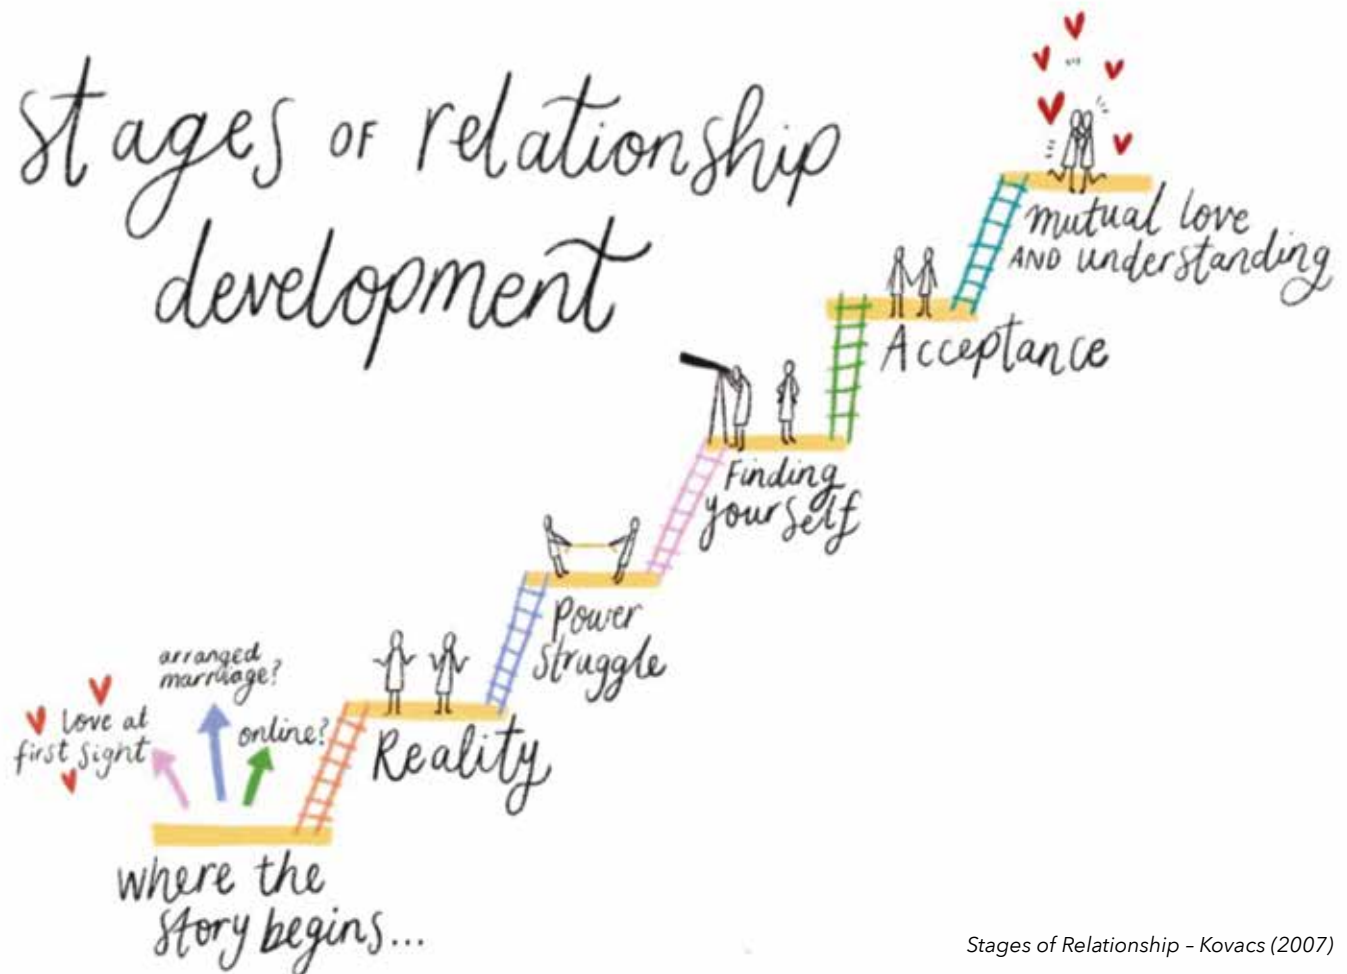 stages OF relationship
development
mutual love
AND understanding
Acceptance
Finding
yourself
Power
struggle
arranged
marriage?
love at
first sight
online?
Reality
where the
story begins...
Stages of Relationship – Kovacs (2007)